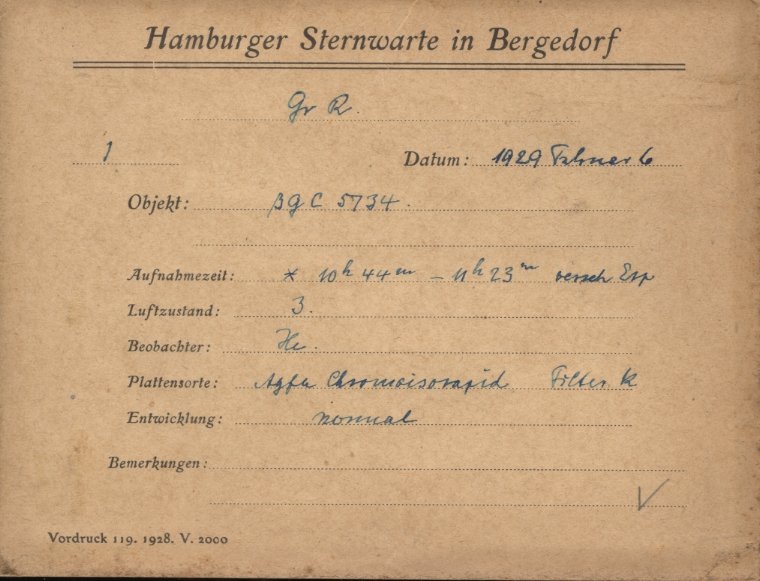 Hamburger Sternwarte in Bergedorf
Gr R.
1 Datum: 1929 Februar 6
Objekt: βGC 5734.
Aufnahmezeit: * 10h 44m – 11h 23m versch Exp
Luftzustand: 3.
Beobachter: He.
Plattensorte: Agfa Chromoisorapid Filter K
Entwicklung: normal
Bemerkungen:
Vordruck 119. 1928. V. 2000